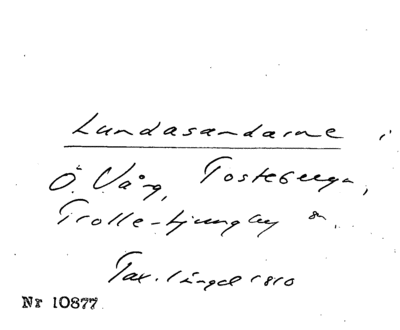 Lundasandarne i
Ö. Vång, Tosteberga,
Trolle-Ljungby m.
Tax. längd 1810
Nr 10877